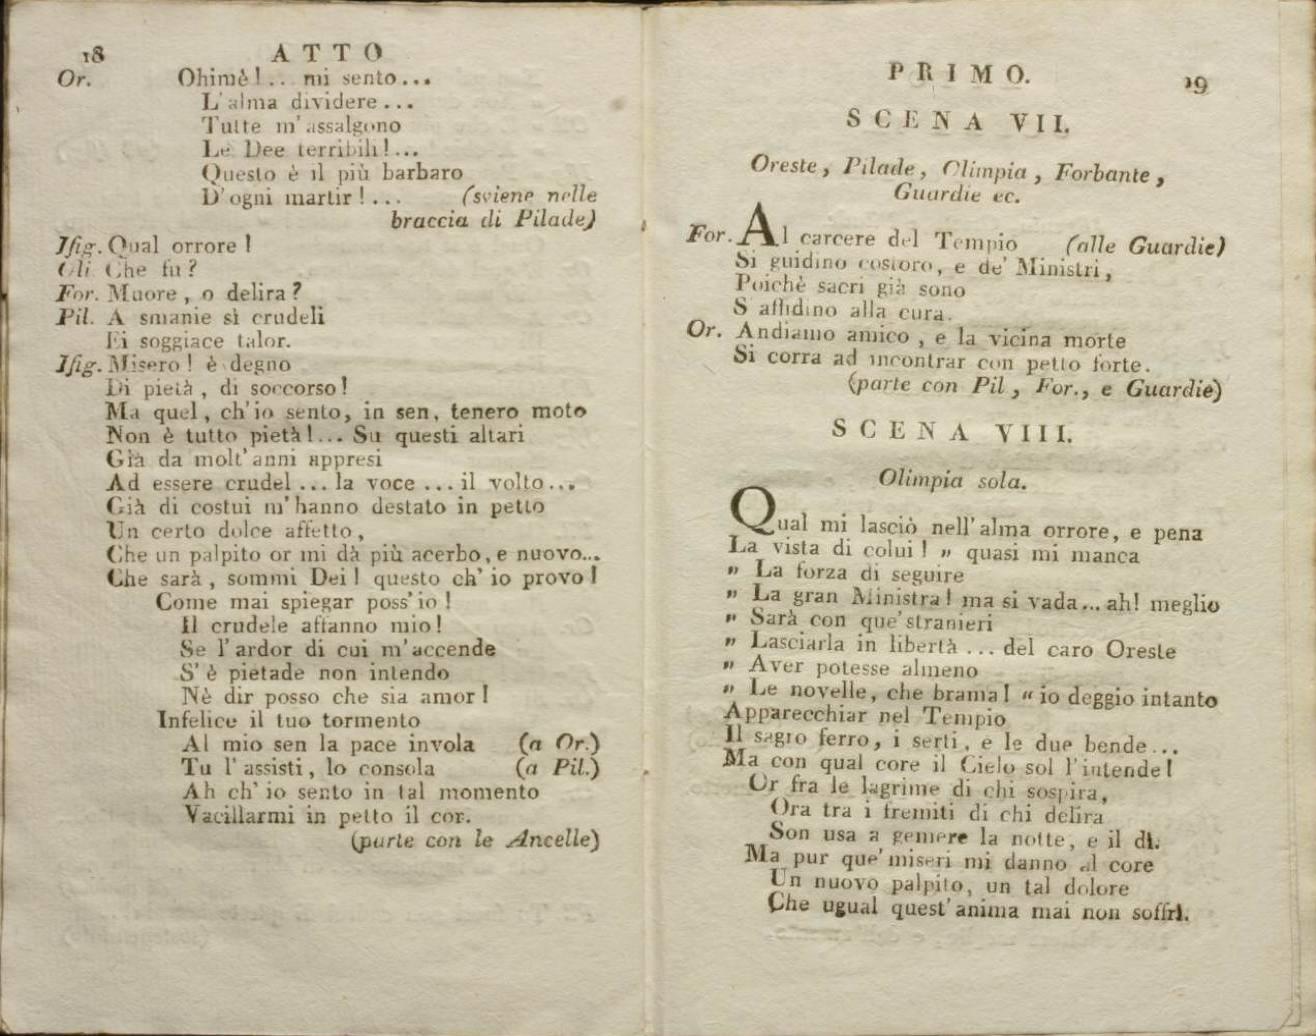 18 ATTO
Or. Ohimè!.. mi sento...
L'alma dividere...
Tutte m'assalgono
Le Dee terribili!...
Questo è il più barbaro
D'ogni martir!... (sviene nelle
braccia di Pilade)
Ifig. Qual orrore!
Oli. Che fu?
For. Muore, o delira?
Pil. A smanie sì crudeli
Ei soggiace talor.
Ifig. Misero! è degno
Di pietà, di soccorso!
Ma quel, ch'io sento, in sen, tenero moto
Non è tutto pietà!... Su questi altari
Già da molt'anni appresi
Ad essere crudel... la voce... il volto...
Già di costui m'hanno destato in petto
Un certo dolce affetto,
Che un palpito or mi dà più acerbo, e nuovo...
Che sarà, sommi Dei! questo ch'io provo!
Come mai spiegar poss'io!
Il crudele affanno mio!
Se l'ardor di cui m'accende
S'è pietade non intendo
Nè dir posso che sia amor!
Infelice il tuo tormento
Al mio sen la pace invola (a Or.)
Tu l'assisti, lo consola (a Pil.)
Ah ch'io sento in tal momento
Vacillarmi in petto il cor.
(parte con le Ancelle)
PRIMO. 19
SCENA VII.
Oreste, Pilade, Olimpia, Forbante,
Guardie ec.
For. Al carcere del Tempio (alle Guardie)
Si guidino costoro, e de' Ministri,
Poichè sacri già sono
S'affidino alla cura.
Or. Andiamo amico, e la vicina morte
Si corra ad incontrar con petto forte.
(parte con Pil, For., e Guardie)
SCENA VIII.
Olimpia sola.
Qual mi lasciò nell'alma orrore, e pena
La vista di colui! „ quasi mi manca
„ La forza di seguire
„ La gran Ministra! ma si vada... ah! meglio
„ Sarà con que' stranieri
„ Lasciarla in libertà... del caro Oreste
„ Aver potesse almeno
„ Le novelle, che brama! “ io deggio intanto
Apparecchiar nel Tempio
Il sagro ferro, i serti, e le due bende...
Ma con qual core il Cielo sol l'intende!
Or fra le lagrime di chi sospira,
Ora tra i fremiti di chi delira
Son usa a gemere la notte, e il dì.
Ma pur que' miseri mi danno al core
Un nuovo palpito, un tal dolore
Che ugual quest'anima mai non soffrì.